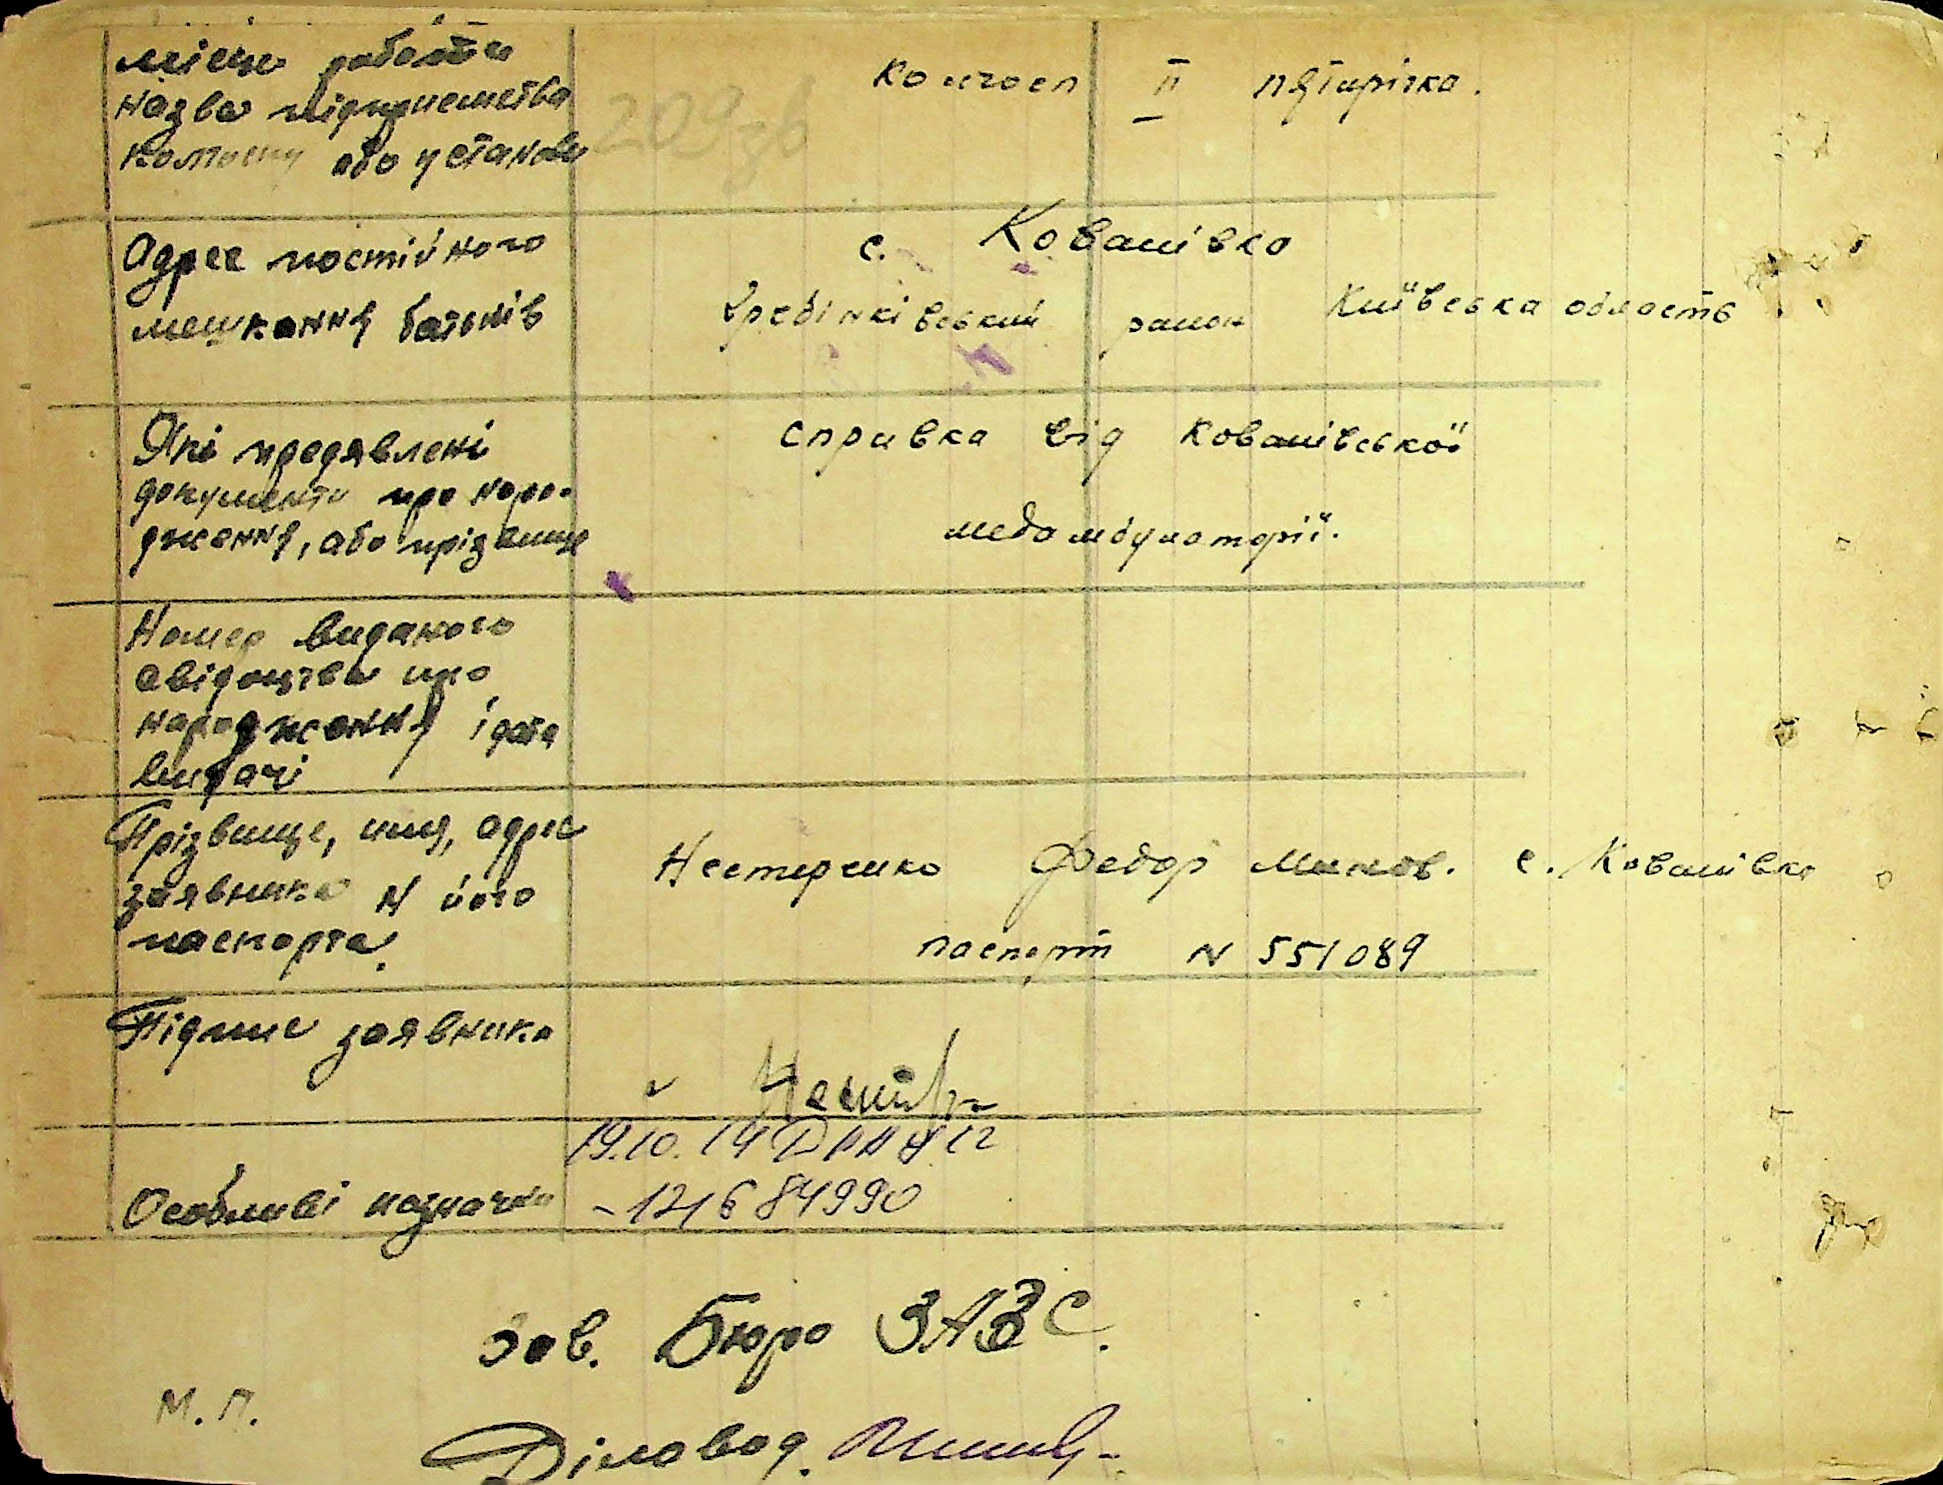 місце роботи
назва підприємства
колгоспу або установи
колгосп II пятирічка.
209зв
Адрес постійного
мешкання батьків
с. Ковалівка
Гребінківський район Київська область
Які предявлені
документи про наро-
дження, або прізвище
Справка від Ковалівської
медамбулаторії.
Номер виданого
свідоцтва про
народження і дата
видачі
Прізвище, имя, адрес
заявника N його
паспорта.
Нестеренко Федор с. Ковалівка
паспорт N 551089
Підпис заявника
19.10.
Особливі
-121684990
Зав. Бюро ЗАЗС.
М. П.
Діловод.